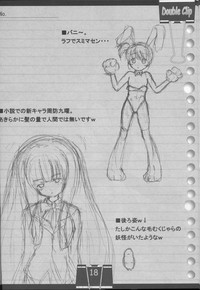 No.
Double Clip
■バニー。
ラフでスミマセン・・・・
■小説での新キャラ周防九曜。
明らかに髪の量で人間では無いですｗ
■後ろ姿ｗ↓
たしかこんな毛むくじゃらの
妖怪がいたようなｗ
18